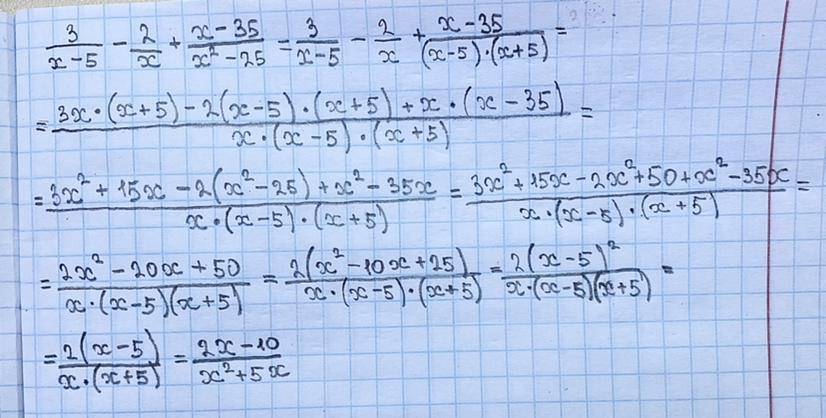 3/(x-5) - 2/x + (x-35)/(x²-25) = 3/(x-5) - 2/x + (x-35)/((x-5)·(x+5)) =
= (3x·(x+5) - 2(x-5)·(x+5) + x·(x-35))/(x·(x-5)·(x+5)) =
= (3x² + 15x - 2(x²-25) + x² - 35x)/(x·(x-5)·(x+5)) = (3x² + 15x - 2x² + 50 + x² - 35x)/(x·(x-5)·(x+5)) =
= (2x² - 20x + 50)/(x·(x-5)(x+5)) = (2(x² - 10x + 25))/(x·(x-5)·(x+5)) = (2(x-5)²)/(x·(x-5)(x+5)) =
= (2(x-5))/(x·(x+5)) = (2x-10)/(x²+5x)